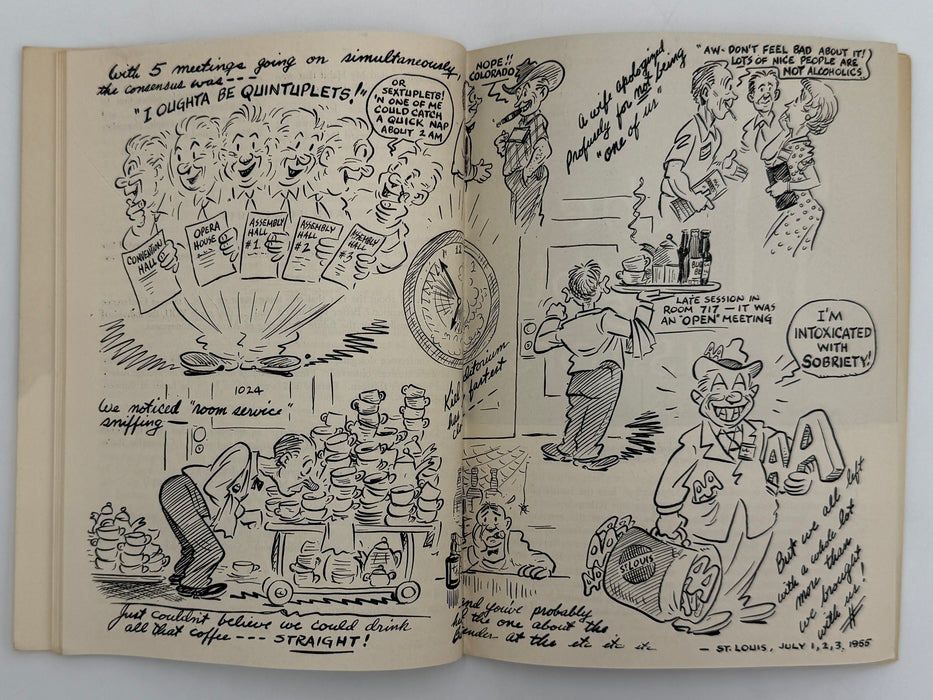 With 5 meetings going on simultaneously,
the consensus was ---
"I OUGHTA BE QUINTUPLETS!"
OR
SEXTUPLETS!
'N ONE OF ME
COULD CATCH
A QUICK NAP
ABOUT 2 AM
CONVENTION
HALL
OPERA
HOUSE
ASSEMBLY
HALL
#1
ASSEMBLY
HALL
#2
ASSEMBLY
HALL
#3
1024
We noticed "room service"
sniffing —
Just couldn't believe we could drink
all that coffee --- STRAIGHT!
NOPE!!
COLORADO
A wife apologized
profusely for not being
"one of us"
"AW- DON'T FEEL BAD ABOUT IT!
LOTS OF NICE PEOPLE ARE
NOT ALCOHOLICS.
12
2
LATE SESSION IN
ROOM 717 — IT WAS
AN "OPEN" MEETING
Kiel
fastest
I'M
INTOXICATED
WITH
SOBRIETY!
AA
AA
AA
ST. LOUIS
AA
and you've probably
the one about the
at the etc etc etc
But we all left
with a whole lot
more than
we brought
with us!
— ST. LOUIS, JULY 1, 2, 3, 1955